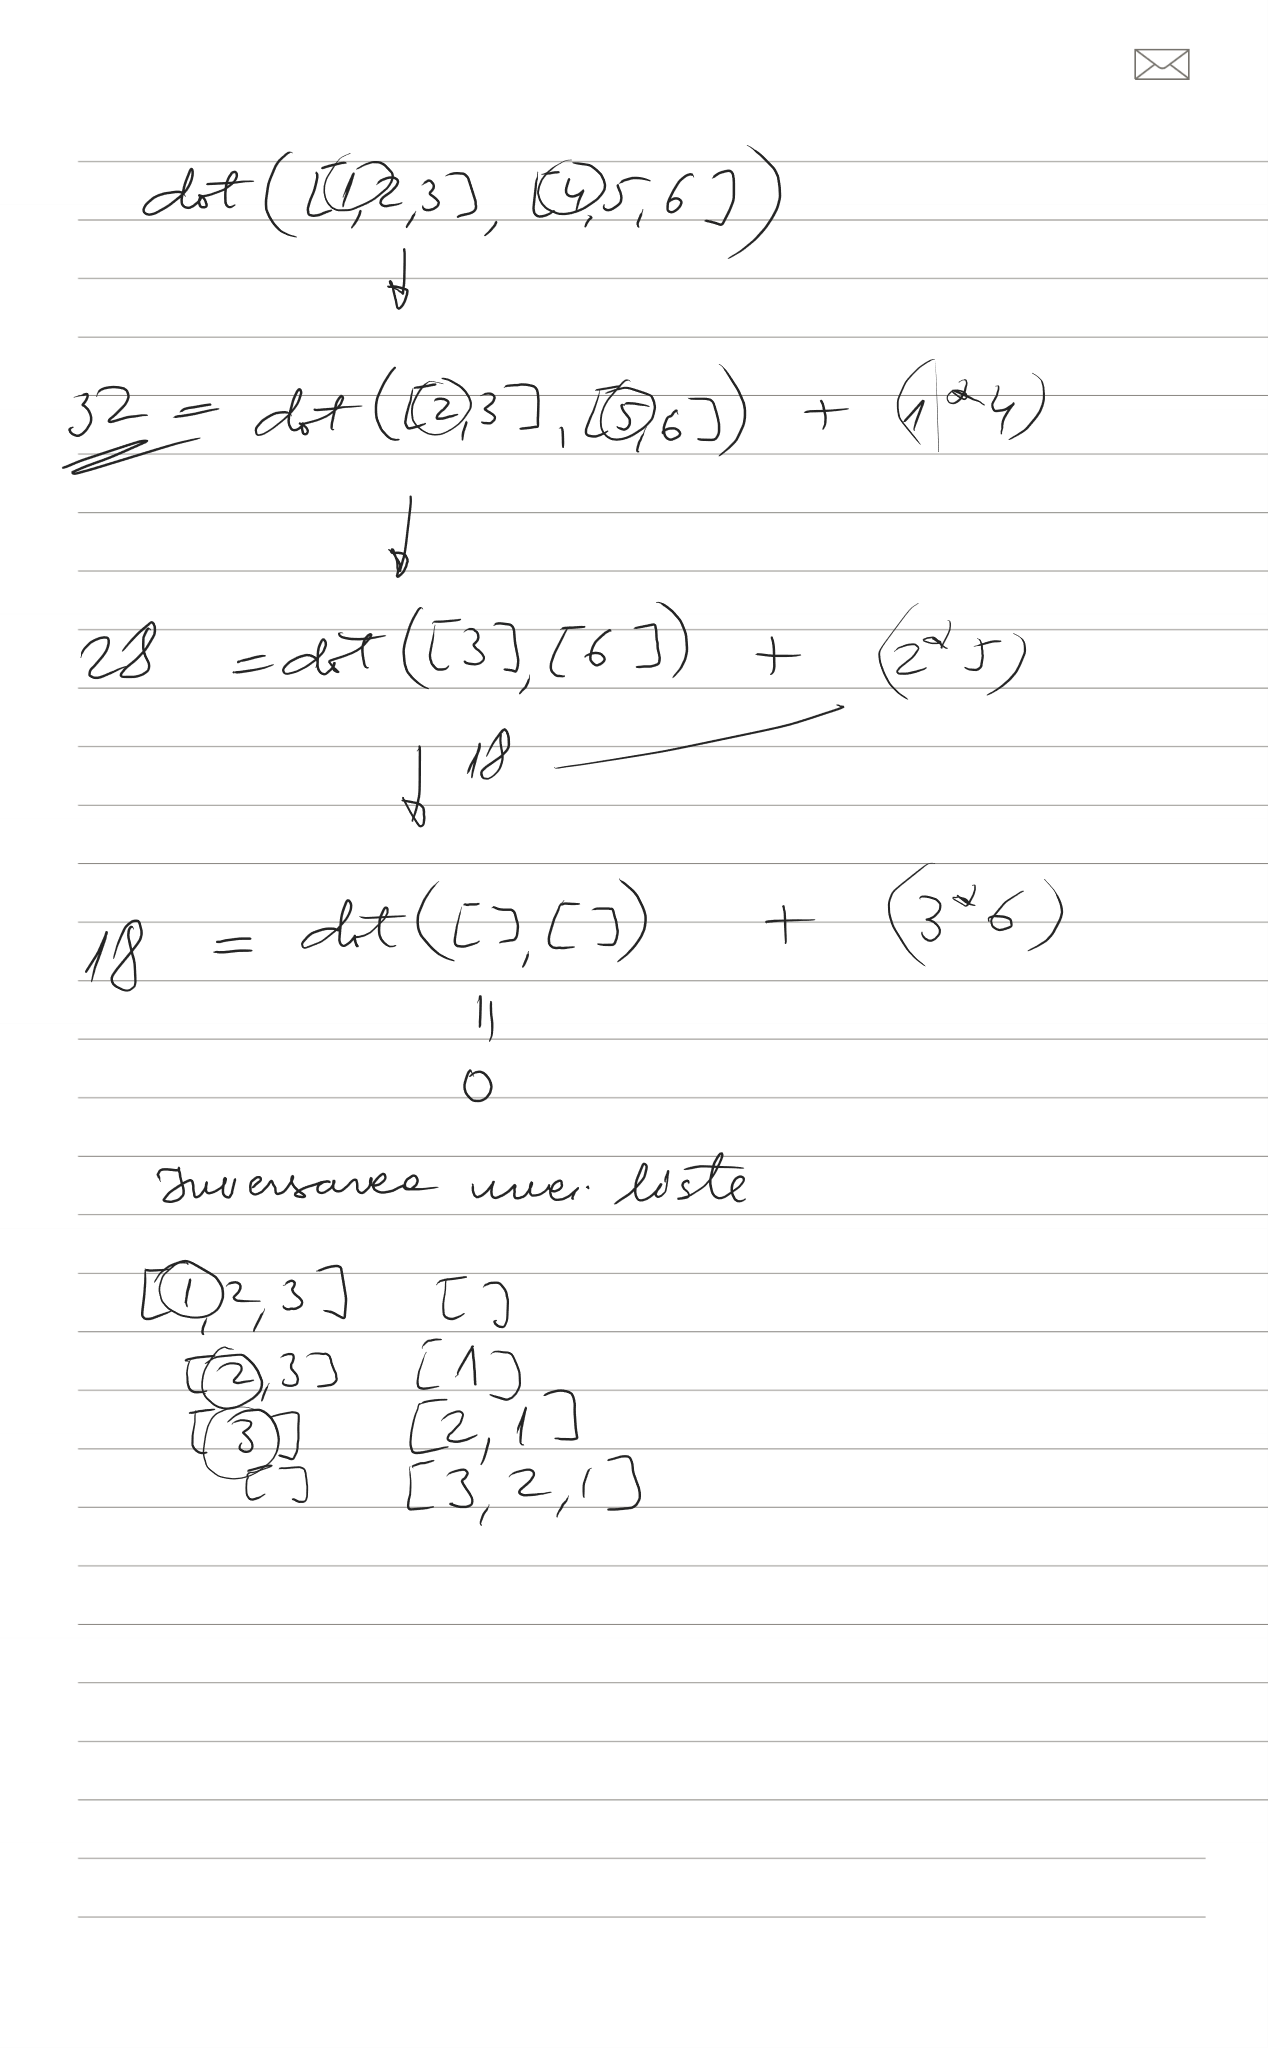 dot([1,2,3], [4,5,6])
32 = dot([2,3], [5,6]) + (1*4)
28 = dot([3],[6]) + (2*5)
18
18 = dot([],[]) + (3*6)
||
0
Inversarea unei liste
[1,2,3] []
[2,3] [1]
[3] [2,1]
[] [3,2,1]